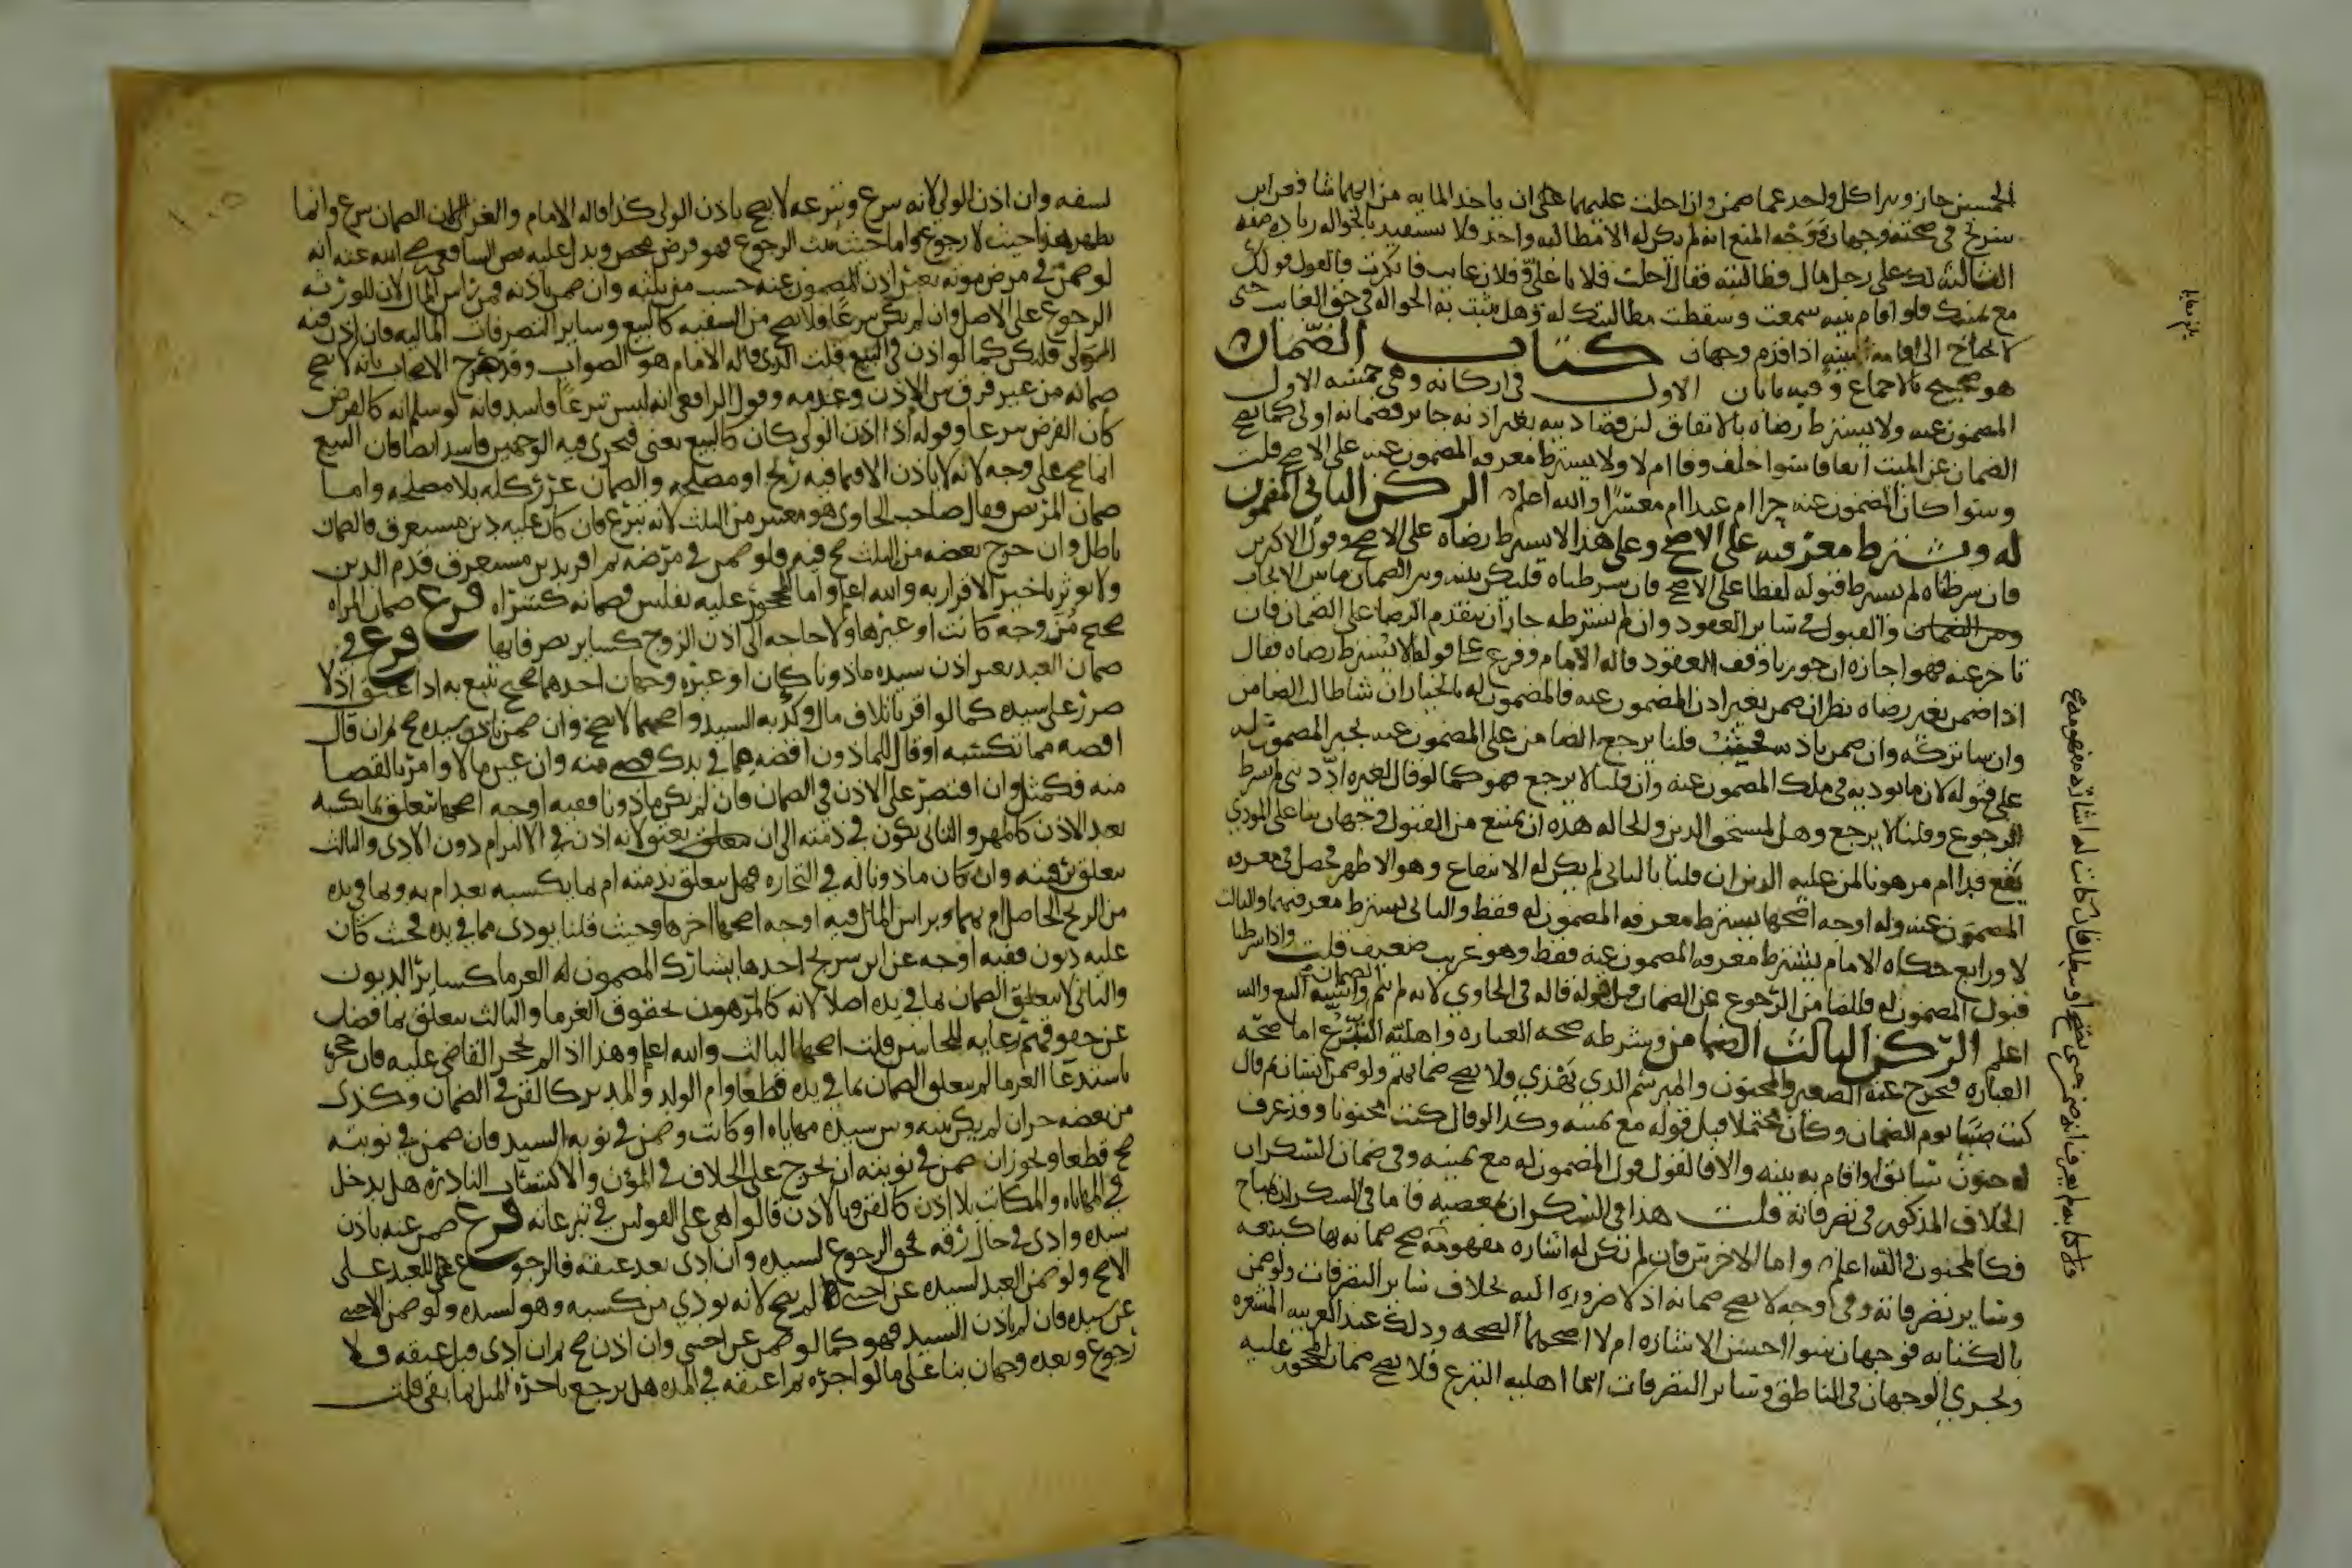 الخمسين جاز وبرا كل واحد عما ضمن وان احلت عليهما على ان ياخذ المايه من ايهما شا فعن ابن
سريج في صحته وجهان ووجه المنع انه لم يكن له الا مطالبه واحد فلا يستفيد بالحواله زياده صفه
الثالثه لك على رجل مال فطالبته فقال احلت فلانا علي وفلان غايب فانكرت فالقول قولك
مع يمينك فلو اقام بينه سمعت وسقطت مطالبتك له وهل يثبت به الحواله في حق الغايب حتى
لا يحتاج الى اقامه البينه اذا قدم وجهان كتاب الضمان
هو صحيح بالاجماع وفيه بابان الاول في اركانه وهي خمسه الاول
المضمون عنه ولا يشترط رضاه بالاتفاق لان قضا دينه بغير اذنه جايز فضمانه اولى كما يصح
الضمان عن الميت اتفاقا سوا خلف وفا ام لا ولا يشترط معرفه المضمون عنه على الاصح قلت
وسوا كان المضمون عنه حرا ام عبدا ام معسرا والله اعلم الركن الثاني المضمون
له ويشترط معرفته على الاصح وعلى هذا لا يشترط رضاه على الاصح وقول الاكثرين
فان شرطناه لم يشترط قبوله لفظا على الاصح فان شرطناه فليكن بينه وبين الضمان ما بين الايجاب
والقبول في ساير العقود وان لم نشترطه جاز ان يتقدم الرضا على الضمان فان
تاخر عنه فهو اجازه ان جوزنا وقف العقود قاله الامام وفرع على قولنا لا يشترط رضاه فقال
اذا ضمن بغير رضاه نظر ان ضمن بغير اذن المضمون عنه فالمضمون له بالخيار ان شا طالب الضامن
وان شا تركه وان ضمن باذنه فحيث قلنا يرجع الضامن على المضمون عنه يجبر المضمون له
على قبوله لان ما يوديه في ملك المضمون عنه وان قلنا لا يرجع فهو كما لو قال لغيره اد ديني بشرط
الرجوع وقلنا لا يرجع وهل لمستحق الدين والحاله هذه ان يمتنع من القبول وجهان بنا على المودى
يقع فدا ام موهوبا لمن عليه الدين ان قلنا بالثاني لم يكن له الامتناع وهو الاظهر فحصل في معرفه
المضمون عنه وله اوجه اصحها يشترط معرفه المضمون له فقط والثاني يشترط معرفتهما والثالث
لا ورابع حكاه الامام يشترط معرفه المضمون عنه فقط وهو غريب ضعيف قلت واذا شرطنا
قبول المضمون له فللضامن الرجوع عن الضمان قبل قبوله قاله في الحاوي لانه لم يتم الضمان واشبه البيع والله
اعلم الركن الثالث الضامن وشرطه صحه العباره واهليه التبرع اما صحه
العباره فيخرج عنه الصغير والمجنون والمبرسم الذي يهذي ولا يصح ضمانهم ولو ضمن انسان ثم قال
كنت صبيا يوم الضمان وكان محتملا قبل قوله مع يمينه وكذا لو قال كنت مجنونا وقد عرف
له جنون سابق او اقام به بينه والا فالقول قول المضمون له مع يمينه وفي ضمان السكران
الخلاف المذكور في تصرفاته قلت هذا في السكران بمعصيه فاما في السكران بمباح
فكالمجنون والله اعلم واما الاخرس فان لم تكن له اشاره مفهومه صح ضمانه بها كبيعه
وساير تصرفاته وفي وجه لا يصح ضمانه اذ لا ضروره اليه بخلاف ساير التصرفات ولو ضمن
بالكتابه فوجهان سوا احسن الاشاره ام لا اصحهما الصحه وذلك عند القرينه المشعره
ويجري الوجهان في الناطق وساير التصرفات اما اهليه التبرع فلا يصح ضمان المحجور عليه
لسفه وان اذن الولي لانه تبرع وتبرعه لا يصح باذن الولي كذا قاله الامام والغزالي ان الضمان تبرع وانما
يظهر هذا حيث لا رجوع واما حيث ثبت الرجوع فهو قرض محض ويدل عليه نص الشافعي رضي الله عنه انه
لو ضمن في مرض موته بغير اذن المضمون عنه حسب من ثلثه وان ضمن باذنه فمن راس المال لان للورثه
الرجوع على الاصيل وان لم يكن تبرعا ولا يصح من السفيه كالبيع وساير التصرفات الماليه فان اذن فيه
الولي فليكن كما لو اذن في البيع قلت الذي قاله الامام هو الصواب وقد صرح الاصحاب بانه لا يصح
ضمانه من غير فرق بين الاذن وعدمه وقول الرافعي انه ليس تبرعا فاسد فانه لو سلم انه كالقرض
كان القرض تبرعا وقوله اذا اذن الولي كان كالبيع يعني فيجري فيه الوجهين فاسد ايضا فان البيع
انما صح على وجه لانه لا ياذن الا فيما فيه ربح او مصلحه والضمان غرر كله بلا مصلحه واما
ضمان المريض فقال صاحب الحاوي هو معتبر من الثلث لانه تبرع فان كان عليه دين مستغرق فالضمان
باطل وان خرج بعضه من الثلث صح فيه فلو ضمن في مرضه ثم اقر بدين مستغرق قدم الدين
ولا يوثر تاخير الاقرار به والله اعلم واما المحجور عليه بفلس فضمانه كشراه فرع ضمان المراه
صحيح مزوجه كانت او غيرها ولا حاجه الى اذن الزوج كساير تصرفاتها فرع في
ضمان العبد بغير اذن سيده ماذونا كان او غيره وجهان احدهما صحيح يتبع به اذا عتق اذ لا
ضرر على سيده كما لو اقر باتلاف مال وكذبه السيد واصحهما لا يصح وان ضمن باذن سيده صح ثم ان قال
اقضه مما تكتسبه او قال للماذون اقضه مما في يدك قضى منه وان عين مالا وامر بالقضا
منه فكمثل وان اقتصر على الاذن في الضمان فان لم يكن ماذونا ففيه اوجه اصحها يتعلق بما يكسبه
بعد الاذن كالمهر والثاني يكون في ذمته الى ان يعتق لانه اذن في الالتزام دون الادا والثالث
يتعلق برقبته وان كان ماذونا له في التجاره فهل يتعلق بذمته ام بما يكسبه بعد ام به وبما في يده
من الربح الحاصل ام بهما وبراس المال فيه اوجه اصحها اخرها وحيث قلنا يودى مما في يده فحيث كان
عليه ديون ففيه اوجه عن ابن سريج احدها يشارك المضمون له الغرما كساير الديون
والثاني لا يتعلق الضمان بما في يده اصلا لانه كالمرهون بحقوق الغرما والثالث يتعلق بما فضل
عن حقوقهم رعايه للجانبين قلت اصحها الثالث والله اعلم وهذا اذا لم يحجر القاضي عليه فان حجر
باستدعا الغرما لم يتعلق الضمان بما في يده قطعا وام الولد والمدبر كالقن في الضمان وكذا
من بعضه حر ان لم يكن بينه وبين سيده مهاياه او كانت وضمن في نوبه السيد فان ضمن في نوبته
صح قطعا ويجوز ان ضمن في نوبته ان يخرج على الخلاف في المؤن والاكتساب النادره هل يدخل
في المهاياه والمكاتب بلا اذن كالقن وبالاذن قالوا هي على القولين في تبرعاته فرع ضمن عنه باذن
سيده وادى في حال رقه فحق الرجوع لسيده وان ادى بعد عتقه فالرجوع للعبد على
الاصح ولو ضمن العبد لسيده عن اجنبي لم يصح لانه يودي من كسبه وهو لسيده ولو ضمن لاجنبي
عن سيده فان لم ياذن السيد فهو كما لو ضمن عن اجنبي وان اذن صح ثم ان ادى قبل عتقه فلا
رجوع وبعده وجهان بنا على ما لو اجره ثم اعتقه في المده هل يرجع باجره المثل لما بقي قلت